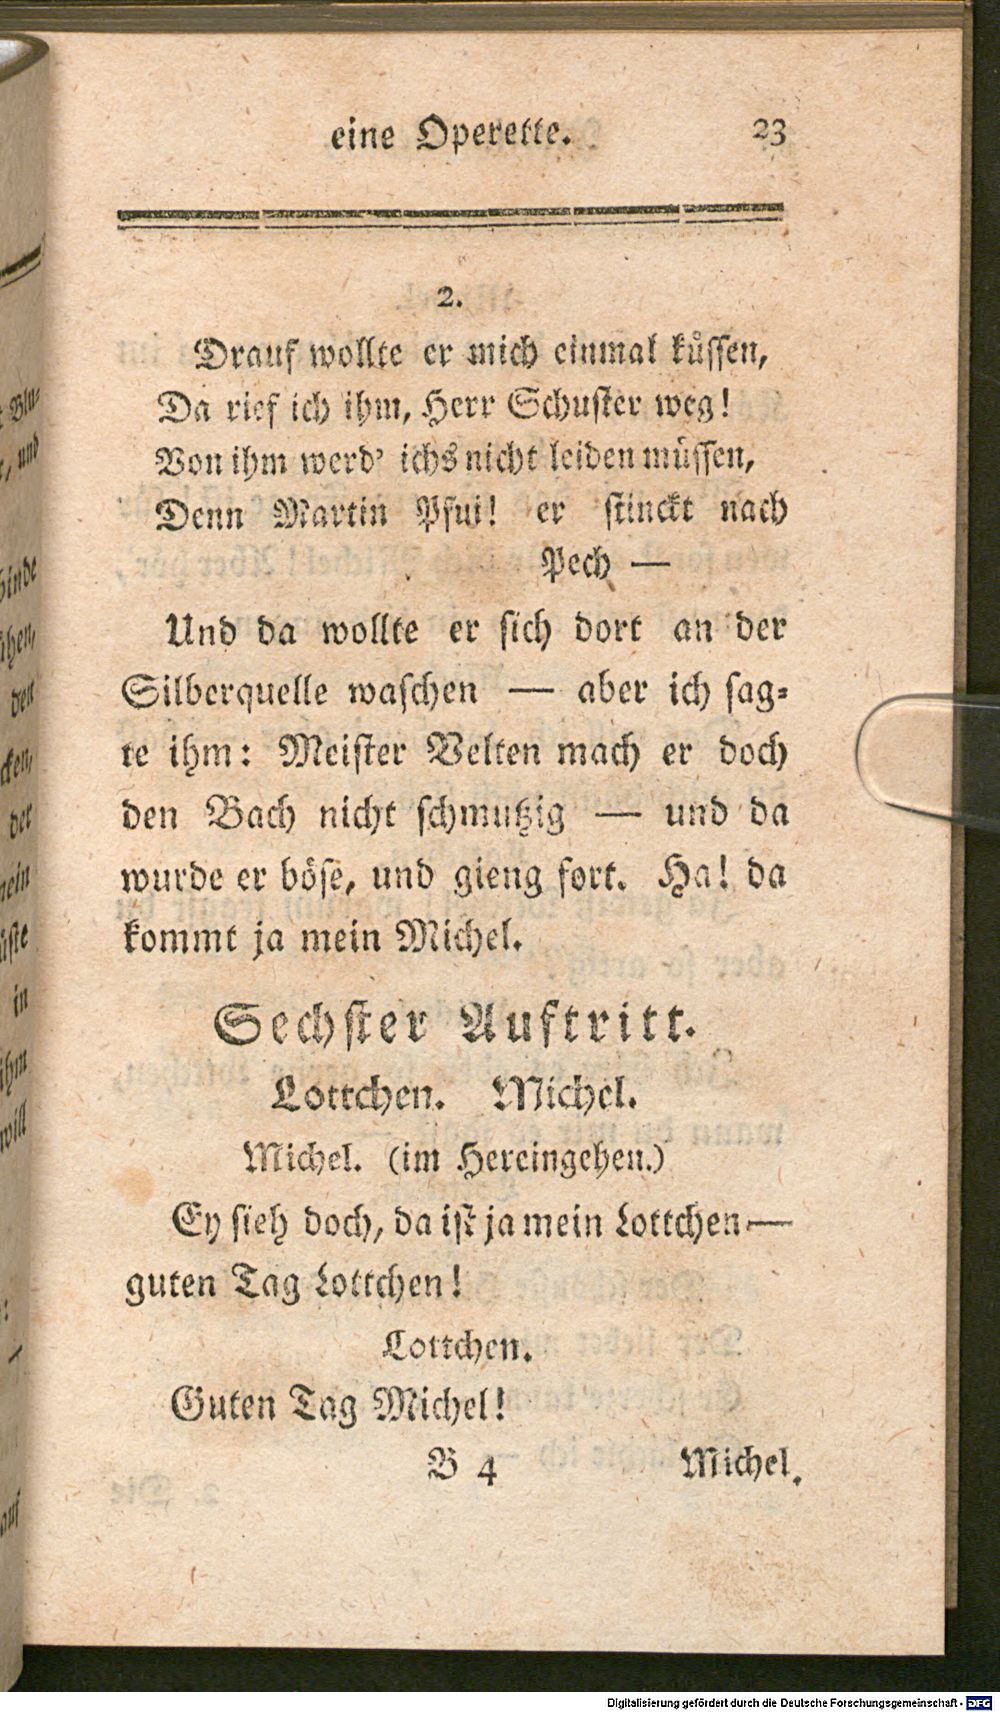 eine Operette. 23
2.
Drauf wollte er mich einmal küssen,
Da rief ich ihm, Herr Schuster weg!
Von ihm werd' ichs nicht leiden müssen,
Denn Martin Pfui! er stinckt nach
Pech —
Und da wollte er sich dort an der
Silberquelle waschen — aber ich sag-
te ihm: Meister Velten mach er doch
den Bach nicht schmutzig — und da
wurde er böse, und gieng fort. Ha! da
kommt ja mein Michel.
Sechster Auftritt.
Lottchen. Michel.
Michel. (im Hereingehen.)
Ey sieh doch, da ist ja mein Lottchen —
guten Tag Lottchen!
Lottchen.
Guten Tag Michel!
B 4 Michel.
Blu-
und
den
der
in
ihm
will
Digitalisierung gefördert durch die Deutsche Forschungsgemeinschaft - DFG